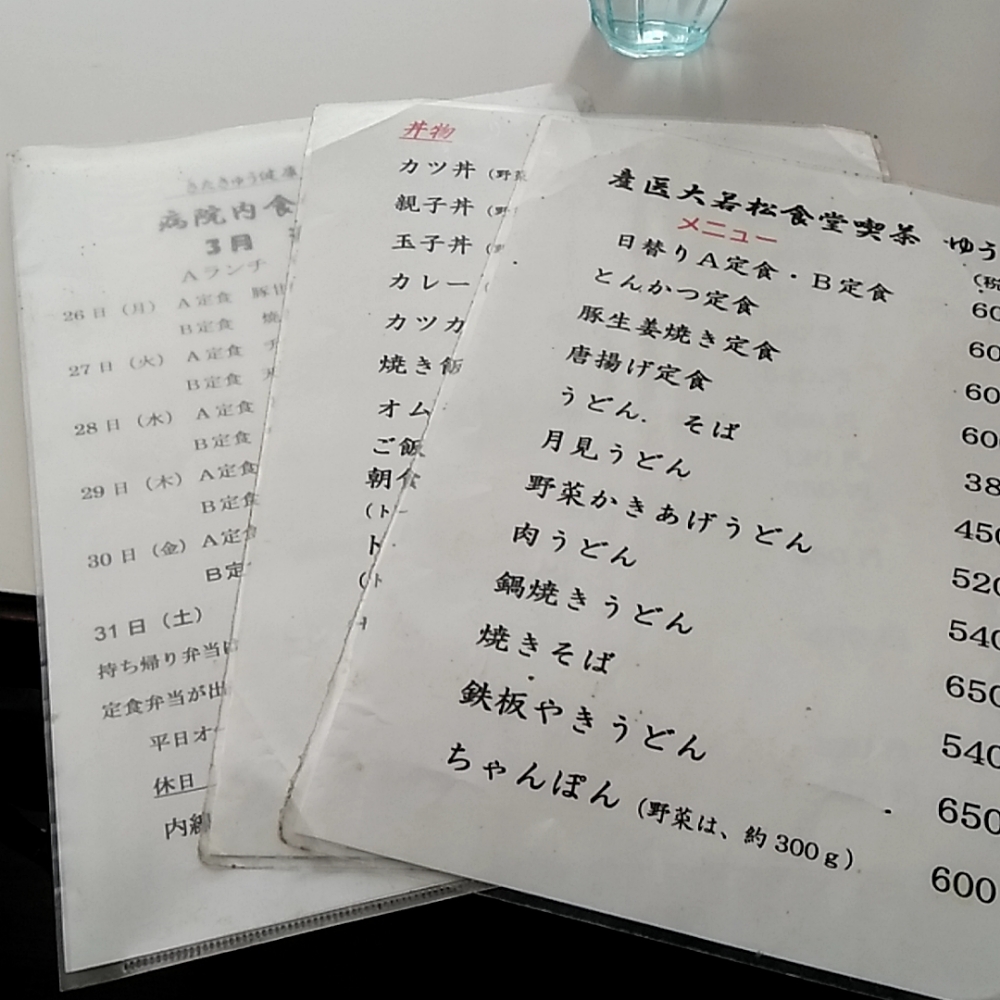 きたきゅう健康
病院内食
3月
Aランチ
26日（月） A定食 豚
B定食 焼
27日（火） A定食 チ
B定食
28日（水） A定食
B定食
29日（木） A定食
B定食
30日（金） A定食
B定
31日（土）
持ち帰り弁当
定食弁当が出
平日オー
休日
内線
丼物
カツ丼（野菜
親子丼（野
玉子丼（野
カレー（
カツカ
焼き飯
オム
ご飯
朝食
（トー
ト
（ト
産医大若松食堂喫茶 ゆう
メニュー
（税
日替りA定食・B定食 60
とんかつ定食 60
豚生姜焼き定食 60
唐揚げ定食 600
うどん．そば 38
月見うどん 450
野菜かきあげうどん 520
肉うどん 540
鍋焼きうどん 650
焼きそば 540
鉄板やきうどん 650
ちゃんぽん（野菜は、約300g） 600